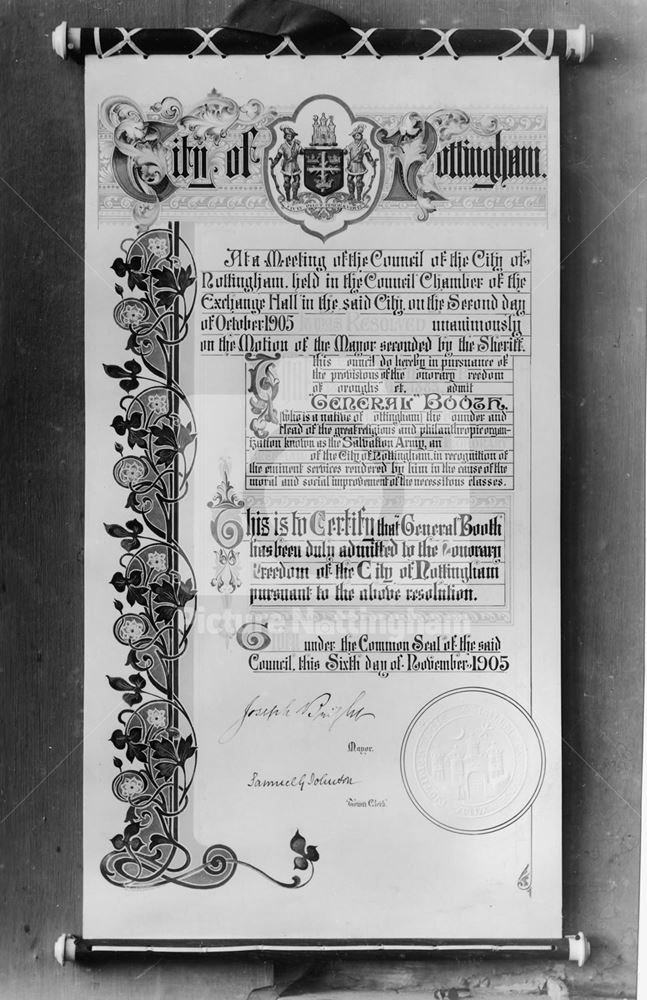 City of Nottingham.
At a Meeting of the Council of the City of
Nottingham, held in the Council Chamber of the
Exchange Hall in the said City, on the Second day
of October 1905 RESOLVED unanimously
on the Motion of the Mayor seconded by the Sheriff.
this ouncil do hereby in pursuance of
the provisions of the onorary reedom
of oroughs ct, admit
"GENERAL" BOOTH,
(who is a native of ottingham) the ounder and
Head of the great religious and philanthropic organ-
ization known as the Salvation Army, an
of the City of Nottingham, in recognition of
the eminent services rendered by him in the cause of the
moral and social improvement of the necessitous classes.
This is to Certify that "General" Booth
has been duly admitted to the onorary
Freedom of the City of Nottingham
pursuant to the above resolution.
G under the Common Seal of the said
Council, this Sixth day of November 1905
Joseph Bright
Mayor.
Samuel G Johnson
Town Clerk
Picture Nottingham